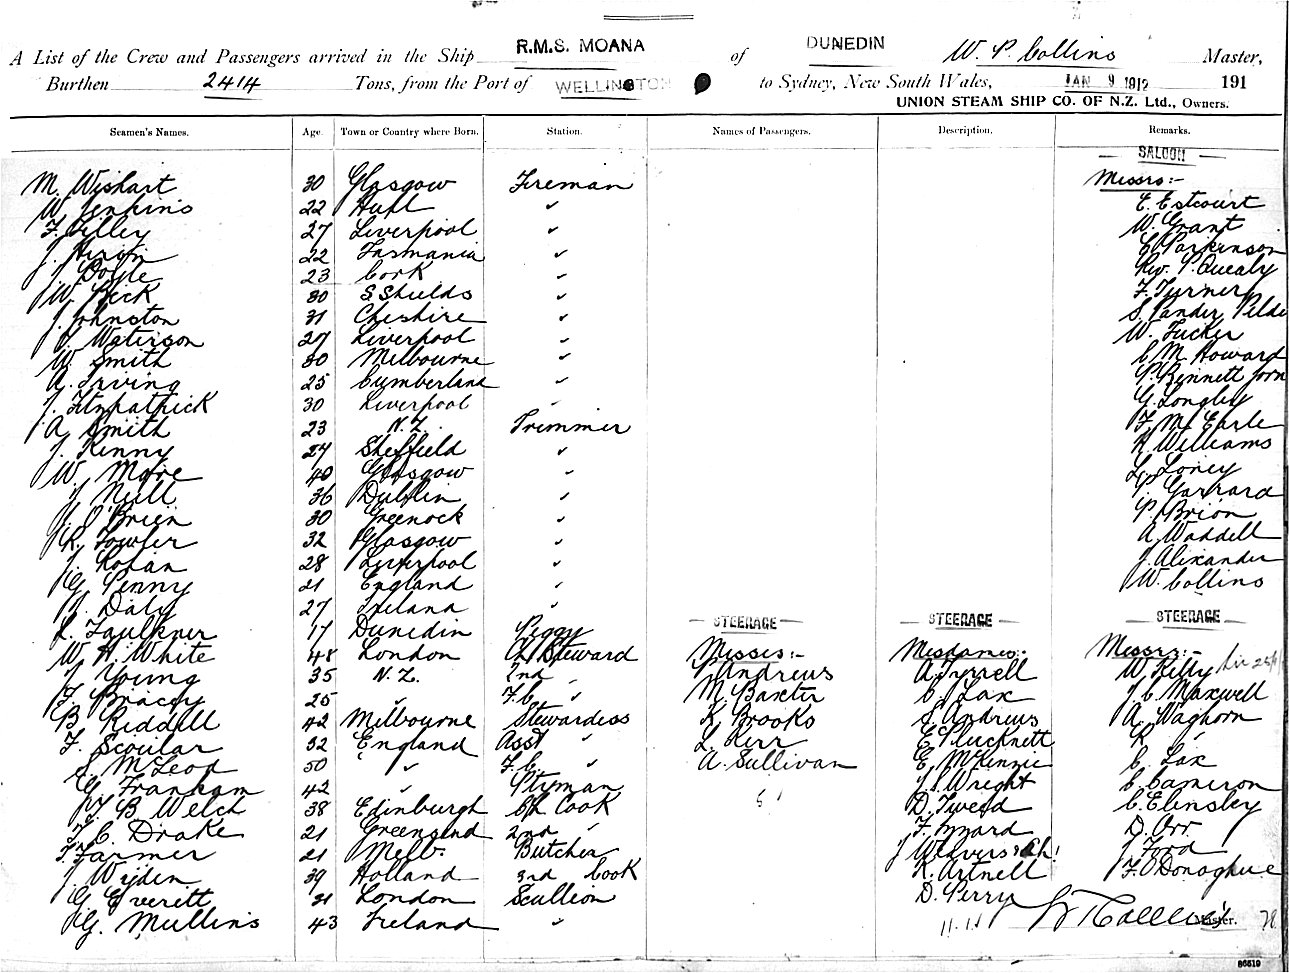 A List of the Crew and Passengers arrived in the Ship R.M.S. MOANA of DUNEDIN W. P. Collins Master,
Burthen 2414 Tons, from the Port of WELLINGTON to Sydney, New South Wales, JAN 9 1912 191
UNION STEAM SHIP CO. OF N.Z. Ltd., Owners.
Seamen's Names. Age. Town or Country where Born. Station. Names of Passengers. Description. Remarks.
SALOON
M. Wishart 30 Glasgow Fireman Messrs:-
W. Jenkins 22 Hull " E. Estcourt
F. Tilley 27 Liverpool " W. Grant
J. Hiron 22 Tasmania " Parkinson
J. Doyle 23 Cork " Rev. P. Quealy
W. Beck 30 S Shields " F. Turner
J. Johnston 31 Cheshire " S. Vander Velde
J. Waterson 27 Liverpool " W. Tucker
W. Smith 30 Melbourne " C. M. Howard
A. Irving 25 Cumberland " P. Bennett
J. Fitzpatrick 30 Liverpool " G. Longley
A. Smith 23 N.Z. Trimmer F. M. Earle
J. Kenny 27 Sheffield " R. Williams
W. More 40 Glasgow " L. Loney
J. Neill 36 Dublin " Garrard
J. O'Brien 30 Greenock " P. Brion
R. Fowler 32 Glasgow " A. Waddell
J. Ronan 28 Liverpool " J. Alexander
G. Penny 21 England " W. Collins
J. Daly 27 Ireland "
STEERAGE STEERAGE STEERAGE
L. Faulkner 17 Dunedin Peggy
W. H. White 48 London Ch. Steward Misses:- Mesdames:- Messrs:-
J. Young 35 N.Z. 2nd " Andrews A. Tyrrell W. Kelly
F. Bracey 25 " F.C. " M. Baxter C. Lax J. C. Maxwell
B. Riddell 42 Melbourne Stewardess K. Brooks S. Andrews A. Waghorn
F. Scoular 32 England Asst " L. Kerr E. Plucknett R "
S. McLeod 50 " F.C. " A. Sullivan E. McKennie C. Lax
G. Franham 42 " Ptyman J. Wright C. Cameron
J. B. Welch 38 Edinburgh Ch Cook D. Tweed C. Elmsley
F. C. Drake 21 Gravesend 2nd " F. Izzard D. Orr
T. Farmer 21 Melb. Butcher J. Weavers & Ch! J. Ford
J. Wijden 39 Holland 3rd Cook K. Artnell F. O'Donoghue
G. Everett 21 London Scullion D. Perry
G. Mullins 43 Ireland " Master.
86510